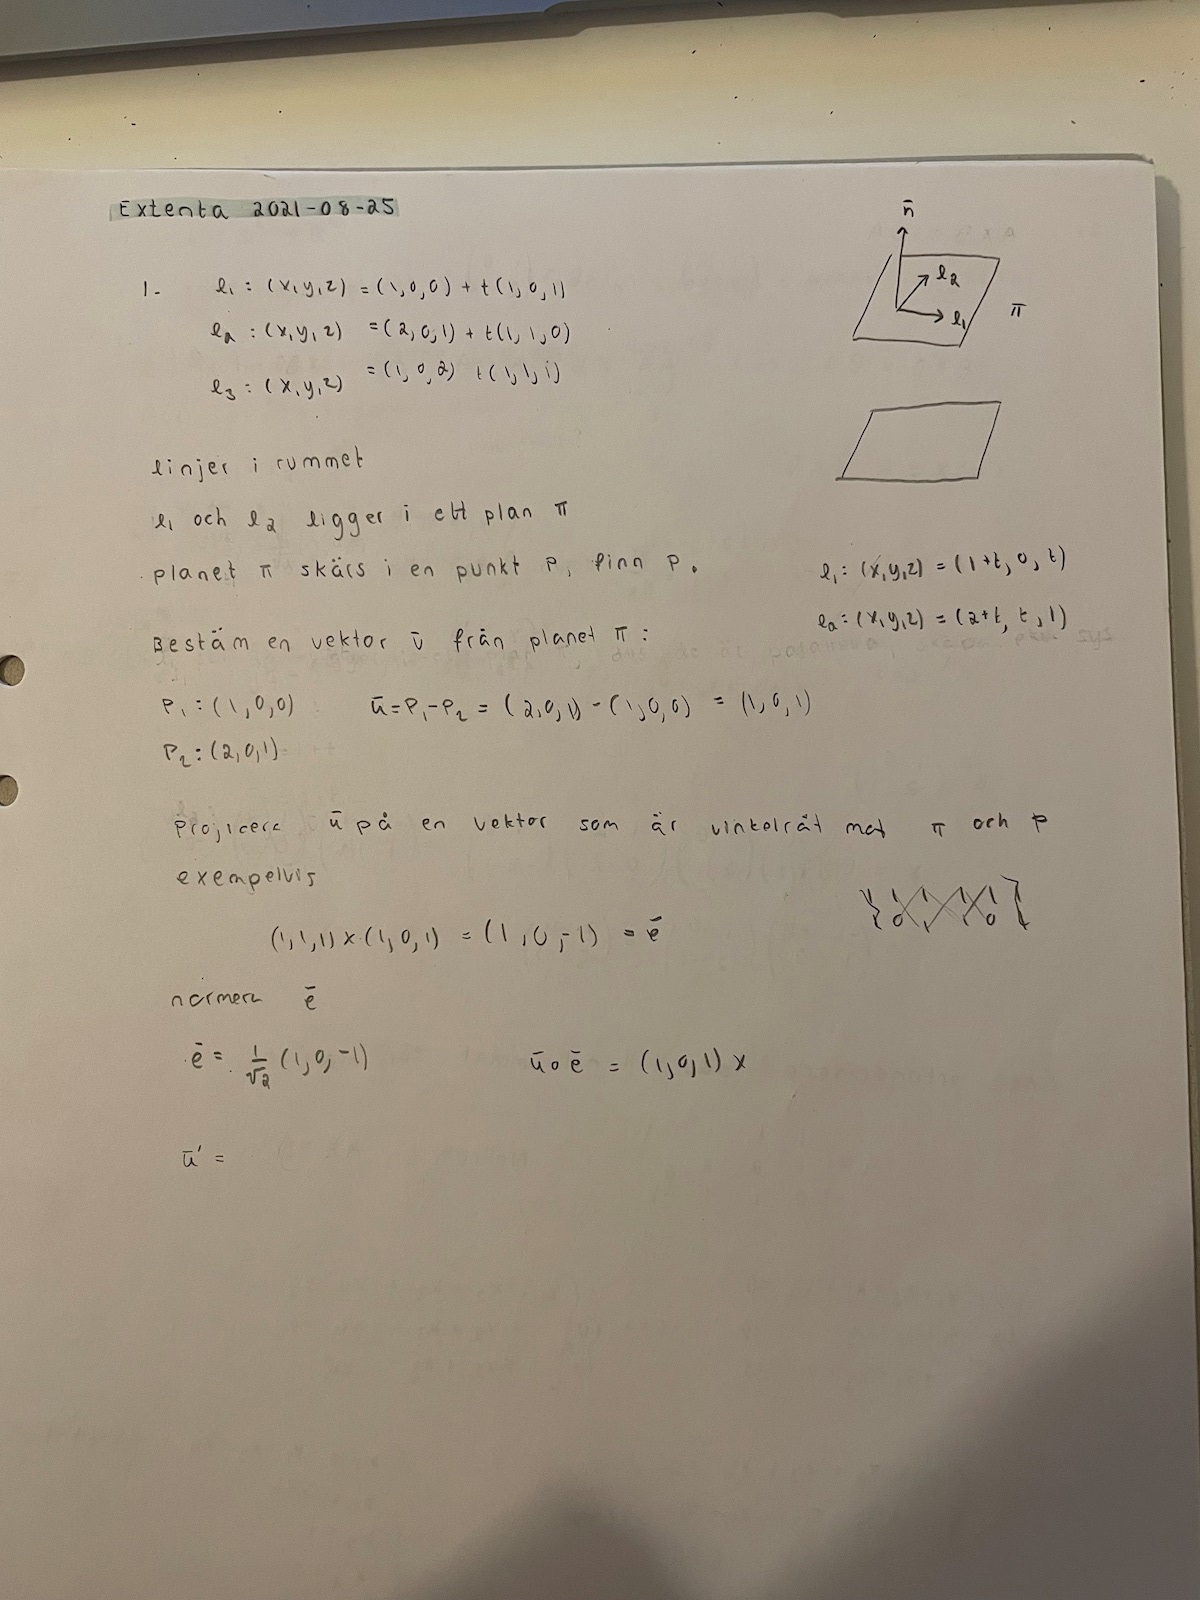 Extenta 2021-08-25
n̄
1. l₁ : (x,y,z) = (1,0,0) + t(1,0,1)
l₂ : (x,y,z) = (2,0,1) + t(1,1,0)
l₃ : (x,y,z) = (1,0,2) t(1,1,1)
l₂
l₁
π
linjer i rummet
l₁ och l₂ ligger i ett plan π
planet π skärs i en punkt P, finn P.
l₁: (x,y,z) = (1+t, 0, t)
l₂: (x,y,z) = (2+t, t, 1)
Bestäm en vektor ū från planet π:
P₁ : (1,0,0) ū = P₁-P₂ = (2,0,1) - (1,0,0) = (1,0,1)
P₂ : (2,0,1)
Projicera ū på en vektor som är vinkelrät mot π och P
exempelvis
(1,1,1) x (1,0,1) = (1,0,-1) = ē
normera ē
ē = 1/√2 (1,0,-1) ū∘ē = (1,0,1) x
ū' =